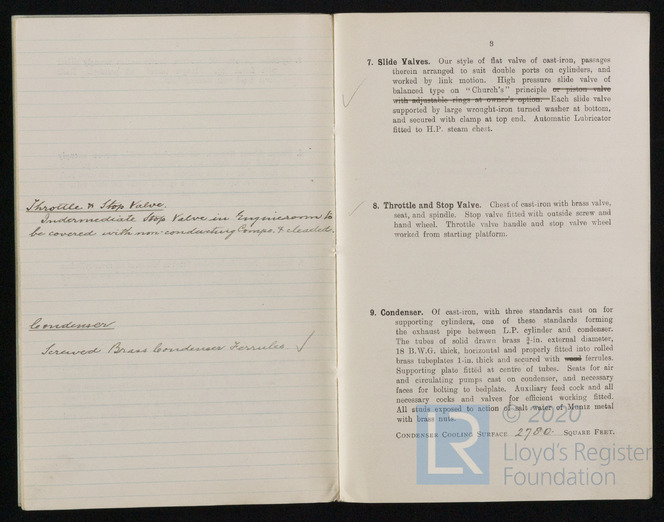 Throttle & Stop Valve.
Indermediate Stop Valve in Engineroom to
be covered with non-conducting Compo. & cleaded.
Condenser
Screwed Brass Condenser Ferrules. ✓
3
7. Slide Valves. Our style of flat valve of cast-iron, passages
therein arranged to suit double ports on cylinders, and
worked by link motion. High pressure slide valve of
balanced type on "Church's" principle or piston valve
with adjustable rings at owner's option. Each slide valve
supported by large wrought-iron turned washer at bottom,
and secured with clamp at top end. Automatic Lubricator
fitted to H.P. steam chest.
8. Throttle and Stop Valve. Chest of cast-iron with brass valve,
seat, and spindle. Stop valve fitted with outside screw and
hand wheel. Throttle valve handle and stop valve wheel
worked from starting platform.
9. Condenser. Of cast-iron, with three standards cast on for
supporting cylinders, one of these standards forming
the exhaust pipe between L.P. cylinder and condenser.
The tubes of solid drawn brass ¾-in. external diameter,
18 B.W.G. thick, horizontal and properly fitted into rolled
brass tubeplates 1-in. thick and secured with ferrules.
Supporting plate fitted at centre of tubes. Seats for air
and circulating pumps cast on condenser, and necessary
faces for bolting to bedplate. Auxiliary feed cock and all
necessary cocks and valves for efficient working fitted.
All studs exposed to action of salt water of Muntz metal
with brass nuts.
CONDENSER COOLING SURFACE 2780. SQUARE FEET.
© 2020
LR
Lloyd's Register
Foundation